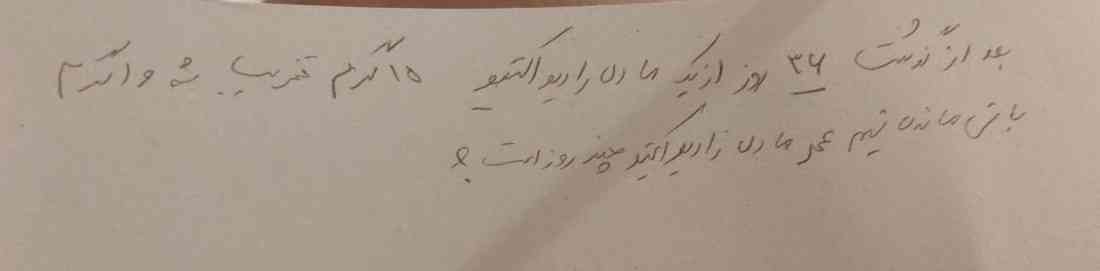 بعد از گذشت ۳۶ روز از یک ماده رادیو اکتیو ۱۵ گرم تخریب شد و ۱ گرم
باقی مانده نیم عمر ماده رادیو اکتیو چند روز است؟